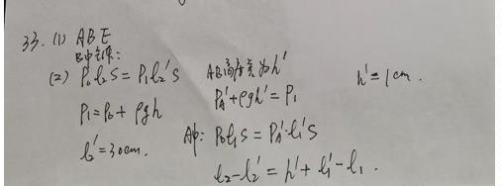 33. (1) ABE
B中气体:
(2) P₀l₂S = P₁l₂'S
P₁ = P₀ + ρgh
l₂' = 30cm.
AB高度差为h'
P_A' + ρgh' = P₁
A中: P₀l₁S = P_A'·l₁'S
l₂ - l₂' = h' + l₁' - l₁.
h' = 1cm.